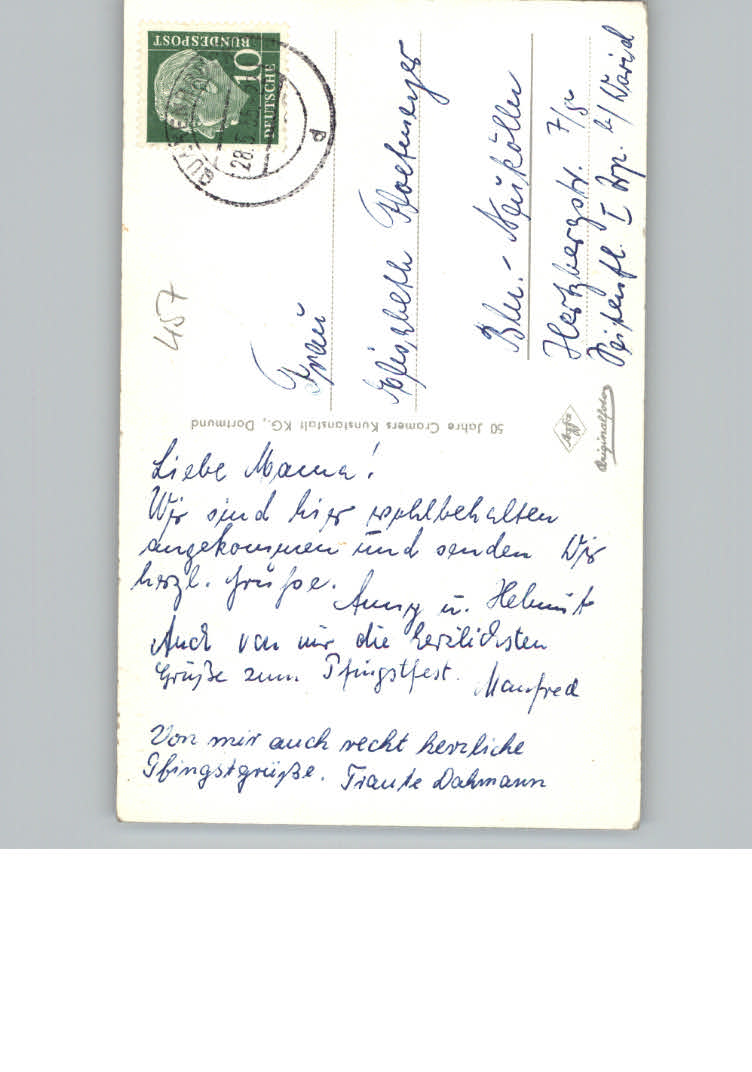 Liebe Mama!
Wir sind hier wohlbehalten
angekommen und senden Dir
herzl. Grüße.
Anny u. Helmut
Auch von mir die herzlichsten
Grüße zum Pfingstfest. Manfred
Von mir auch recht herzliche
Pfingstgrüße. Traute Dahmann
50 Jahre Cramers Kunstanstalt KG., Dortmund
Agfa
Originalfoto
Frau
Elisabeth
Bln.-Neukölln
Hertzbergstr. 7/8
Seitenfl. I Trp. b/ David
457
DEUTSCHE
BUNDESPOST
10
28.5.
d